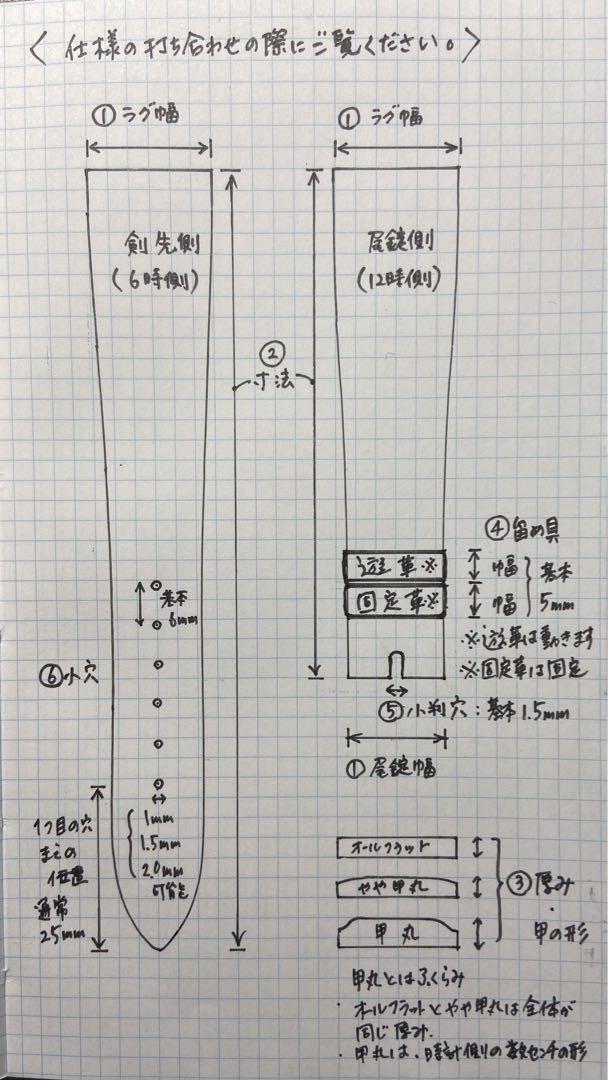 〈 仕様の打ち合わせの際にご覧ください。〉
① ラグ幅
① ラグ幅
剣先側
(6時側)
尾錠側
(12時側)
②
寸法
④ 留め具
遊革※
固定革※
幅
幅
基本
5mm
※遊革は動きます
※固定革は固定
⑤小判穴：基本1.5mm
① 尾錠幅
基本
6mm
⑥小穴
1つ目の穴
までの
位置
通常
25mm
1mm
1.5mm
2.0mm
可能
オールフラット
やや甲丸
甲丸
③厚み
・
甲の形
甲丸とはふくらみ
・オールフラットとやや甲丸は全体が
同じ厚み.
・甲丸は、時計側の数センチの形